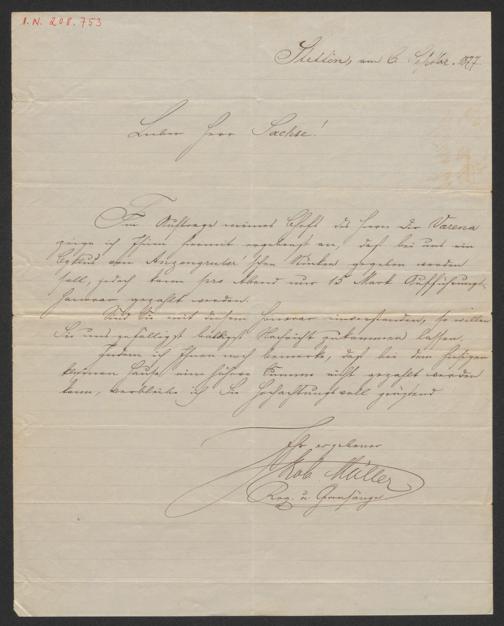 I.N. 208.753
Stettin, am 6. Septbr. 1877.
Lieber Herr Sachse!
Im Auftrage meines Chefs des Herrn Dir. Varena
zeige ich Ihnen hiermit ergebenst an, daß bei uns ein
Cyklus von Anzengruber'schen Stücken gegeben werden
soll, jedoch kann pro Abend nur 15 Mark Aufführungs-
honorar gezahlt werden.
Sind Sie mit diesem Honorar einverstanden, so wollen
Sie uns gefälligst baldigst Nachricht zukommen lassen.
Indem ich Ihnen noch bemerke, daß bei dem hiesigen
kleinen Hause eine höhere Summe nicht gezahlt werden
kann, verbleibe ich Sie hochachtungsvoll grüßend
Ihr ergebener
Jakob Müller
Reg. u.